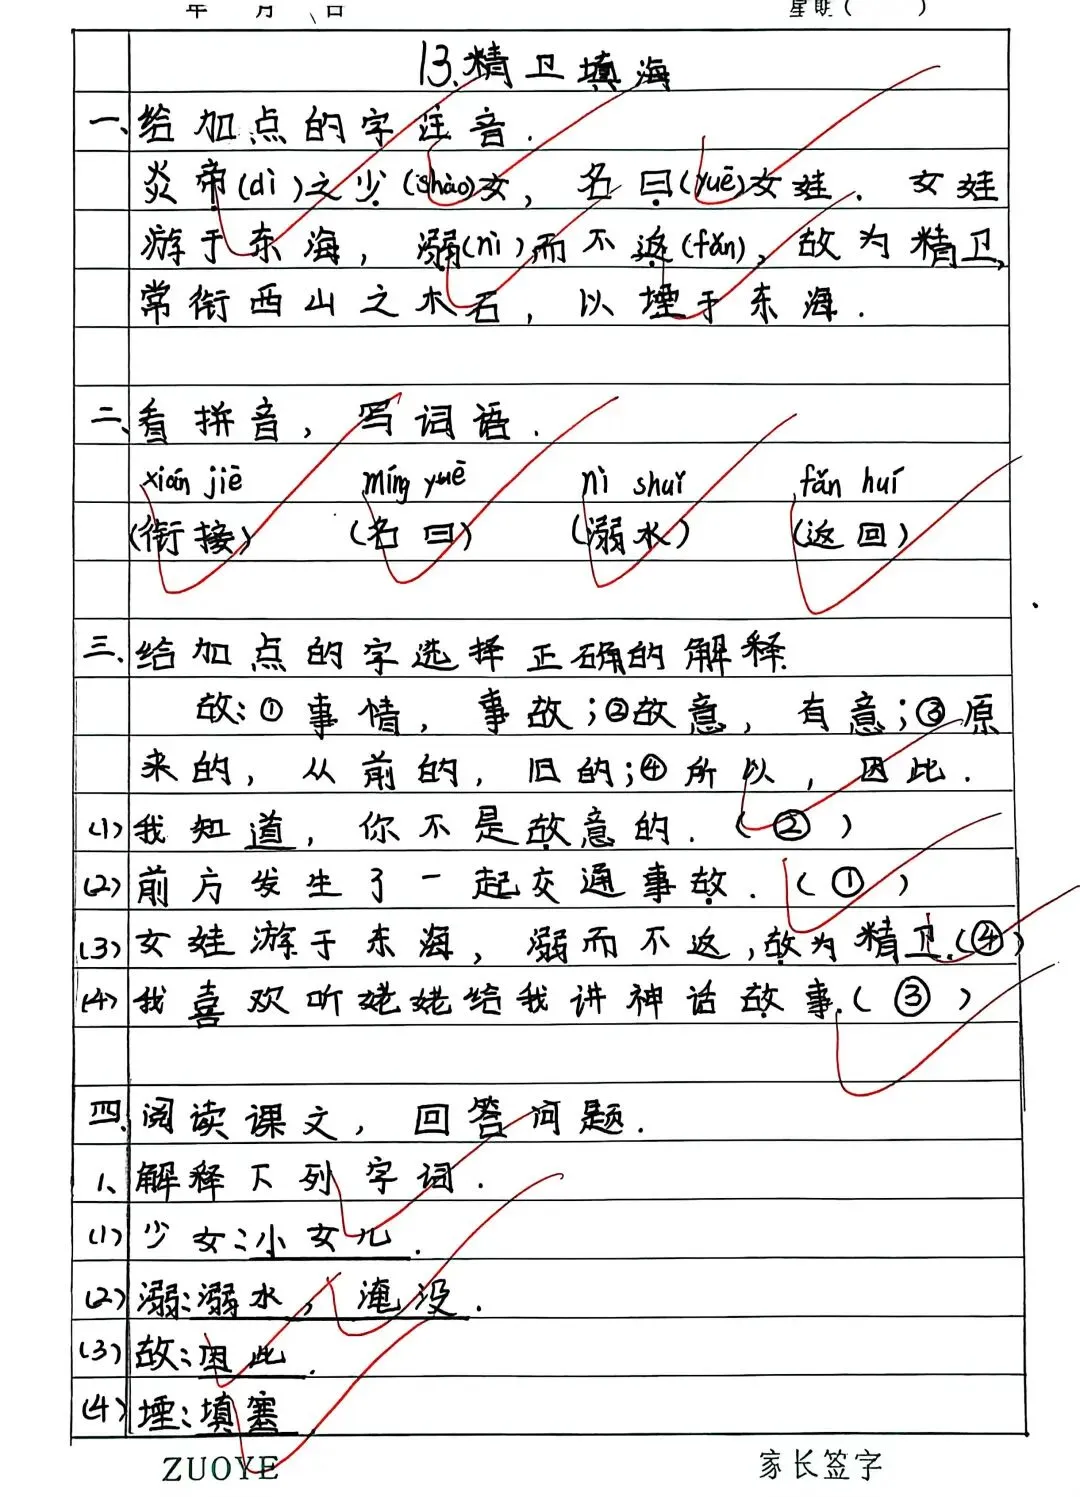 年 月 日 星期( )
13.精卫填海
一、给加点的字注音.
炎帝(dì)之少(shào)女,名曰(yuē)女娃.女娃
游于东海,溺(nì)而不返(fǎn),故为精卫,
常衔西山之木石,以堙于东海.
二、看拼音,写词语.
xián jiē míng yuē nì shuǐ fǎn huí
(衔接) (名曰) (溺水) (返回)
三、给加点的字选择正确的解释.
故:①事情,事故;②故意,有意;③原
来的,从前的,旧的;④所以,因此.
(1)我知道,你不是故意的.(②)
(2)前方发生了一起交通事故.(①)
(3)女娃游于东海,溺而不返,故为精卫.(④)
(4)我喜欢听姥姥给我讲神话故事.(③)
四、阅读课文,回答问题.
1、解释下列字词.
(1)少女:小女儿.
(2)溺:溺水,淹没.
(3)故:因此.
(4)堙:填塞
ZUOYE 家长签字